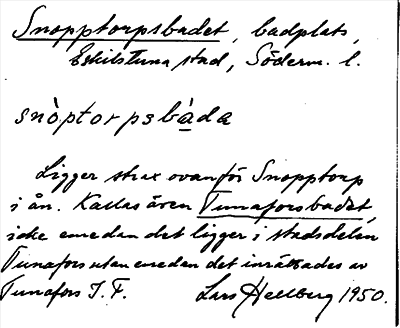 Snopptorpsbadet, badplats,
Eskilstuna stad, Söderm. l.
snòptorpsbàda
Ligger strax ovanför Snopptorp
i ån. Kallas även Tunaforsbadet,
icke emedan det ligger i stadsdelen
Tunafors utan emedan det inrättades av
Tunafors I. F. Lars Hellberg 1950.